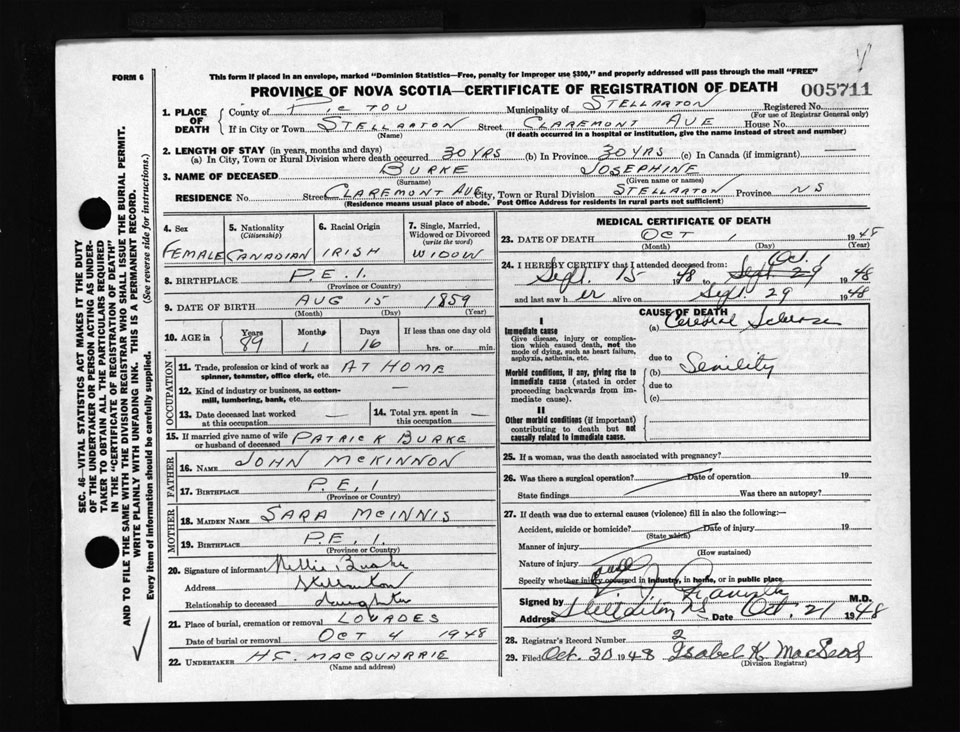 FORM 6
This form if placed in an envelope, marked "Dominion Statistics—Free, penalty for improper use $300," and properly addressed will pass through the mail "FREE"
PROVINCE OF NOVA SCOTIA—CERTIFICATE OF REGISTRATION OF DEATH
005711
1. PLACE OF DEATH
County of PICTOU Municipality of STELLARTON Registered No.
(For use of Registrar General only)
If in City or Town STELLARTON Street CLAREMONT AVE House No.
(Name) (If death occurred in a hospital or institution, give the name instead of street and number)
2. LENGTH OF STAY (in years, months and days)
(a) In City, Town or Rural Division where death occurred 30 YRS (b) In Province 30 YRS (c) In Canada (if immigrant) —
3. NAME OF DECEASED BURKE JOSEPHINE
(Surname) (Given name or names)
RESIDENCE No. Street CLAREMONT AVE City, Town or Rural Division STELLARTON Province NS
(Residence means usual place of abode. Post Office Address for residents in rural parts not sufficient)
4. Sex
FEMALE
5. Nationality
(Citizenship)
CANADIAN
6. Racial Origin
IRISH
7. Single, Married, Widowed or Divorced
(write the word)
WIDOW
8. BIRTHPLACE P.E.I.
(Province or Country)
9. DATE OF BIRTH AUG 15 1859
(Month) (Day) (Year)
10. AGE in Years Months Days If less than one day old
89 1 16 hrs. or min.
OCCUPATION
11. Trade, profession or kind of work as spinner, teamster, office clerk, etc. AT HOME
12. Kind of industry or business, as cotton-mill, lumbering, bank, etc. —
13. Date deceased last worked at this occupation —
14. Total yrs. spent in this occupation —
15. If married give name of wife or husband of deceased PATRICK BURKE
FATHER
16. NAME JOHN MCKINNON
17. BIRTHPLACE P.E.I
(Province or Country)
MOTHER
18. MAIDEN NAME SARA MCINNIS
19. BIRTHPLACE P.E.I.
(Province or Country)
20. Signature of informant Nellie Burke
Address Stellarton
Relationship to deceased daughter
21. Place of burial, cremation or removal LOURDES
Date of burial or removal OCT 4 1948
22. UNDERTAKER MACQUARRIE
(Name and address)
MEDICAL CERTIFICATE OF DEATH
23. DATE OF DEATH OCT 1 1948
(Month) (Day) (Year)
24. I HEREBY CERTIFY that I attended deceased from:
Sept. 15 1948 Sept. 29 Oct. 1 1948
and last saw her alive on Sept. 29 1948
CAUSE OF DEATH
I
Immediate cause
Give disease, injury or complication which caused death, not the mode of dying, such as heart failure, asphyxia, asthenia, etc.
(a) Cerebral
due to
Morbid conditions, if any, giving rise to immediate cause (stated in order proceeding backwards from immediate cause).
(b) Senility
due to
(c)
II
Other morbid conditions (if important) contributing to death but not causally related to immediate cause.
25. If a woman, was the death associated with pregnancy?
26. Was there a surgical operation? Date of operation 19
State findings Was there an autopsy?
27. If death was due to external causes (violence) fill in also the following:—
Accident, suicide or homicide? Date of injury 19
(State which)
Manner of injury
(How sustained)
Nature of injury
Specify whether injury occurred in industry, in home, or in public place
Signed by M.D.
Address Stellarton NS Date Oct. 21 1948
28. Registrar's Record Number 2
29. Filed Oct. 30 1948 Isabel K. MacLeod
(Division Registrar)
SEC. 46—VITAL STATISTICS ACT MAKES IT THE DUTY
OF THE UNDERTAKER OR PERSON ACTING AS UNDER-
TAKER TO OBTAIN ALL THE PARTICULARS REQUIRED
IN THE "CERTIFICATE OF REGISTRATION OF DEATH"
AND TO FILE THE SAME WITH THE DIVISION REGISTRAR WHO SHALL ISSUE THE BURIAL PERMIT.
WRITE PLAINLY WITH UNFADING INK. THIS IS A PERMANENT RECORD.
Every item of information should be carefully supplied. (See reverse side for instructions.)